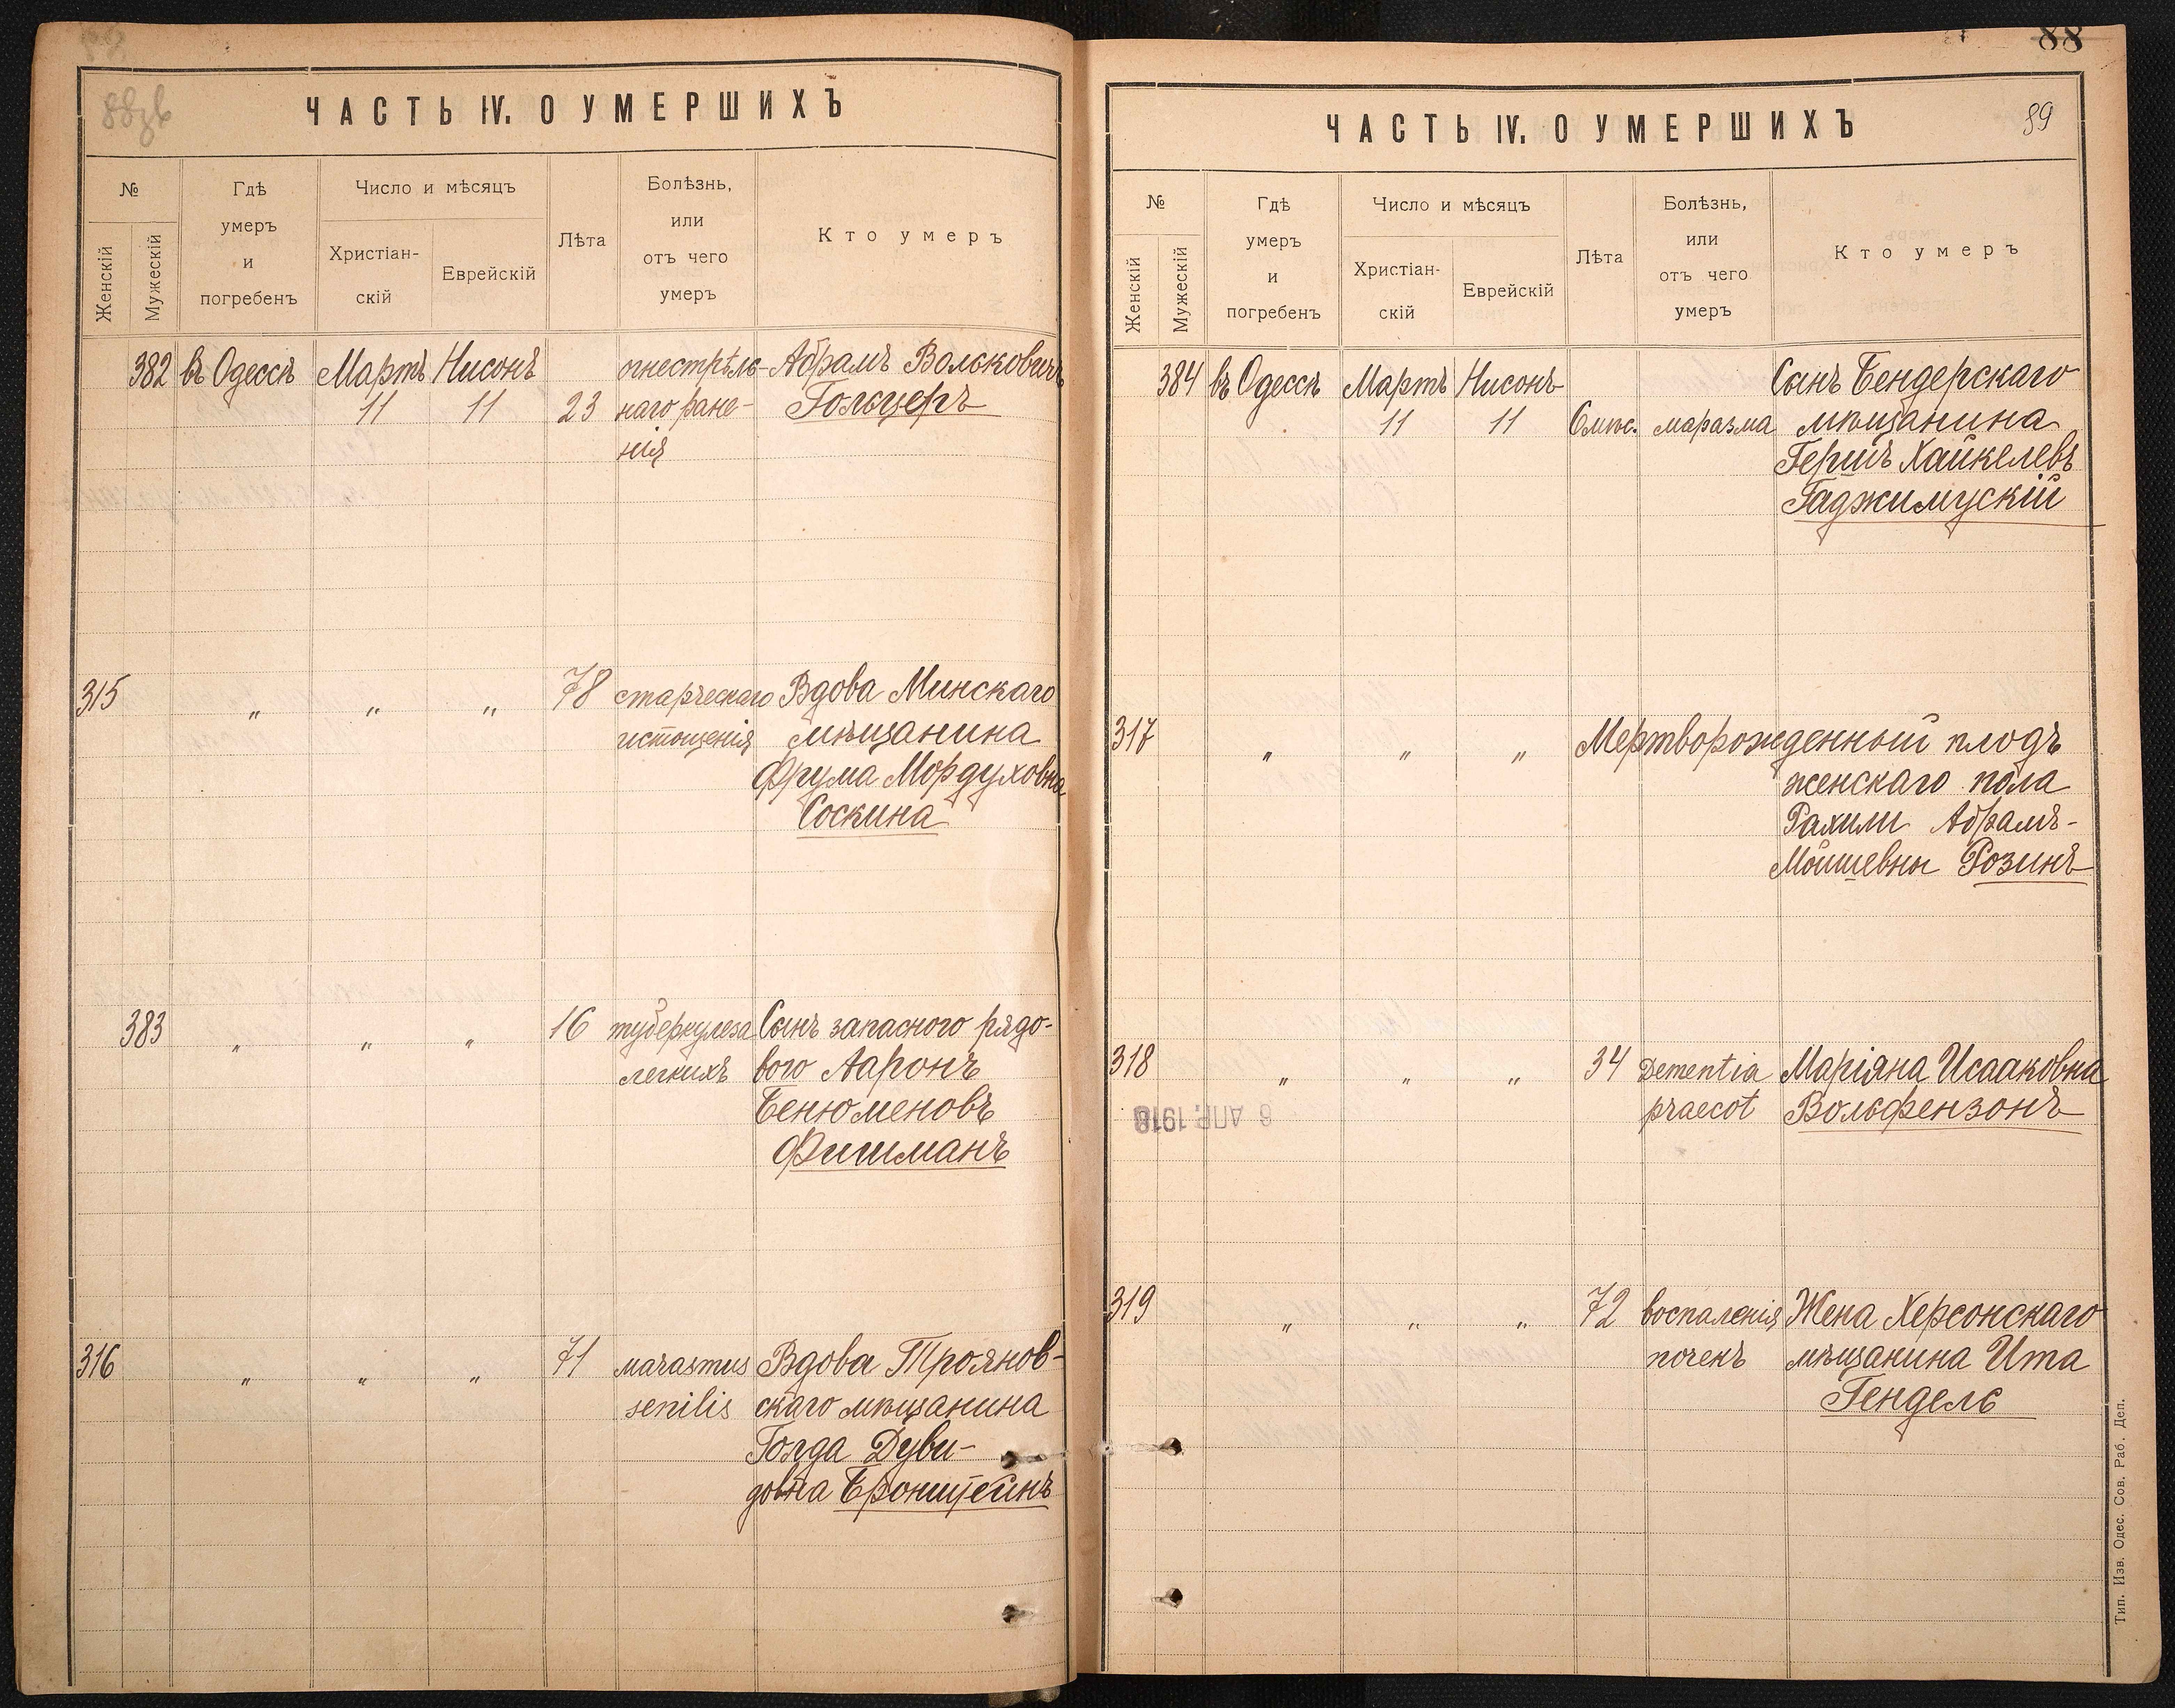 88зв
ЧАСТЬ IV. О УМЕРШИХЪ
№
Женскій
Мужескій
Гдѣ
умеръ
и
погребенъ
Число и мѣсяцъ
Христіан-
скій
Еврейскій
Лѣта
Болѣзнь,
или
отъ чего
умеръ
Кто умеръ
382 въ Одессѣ Мартъ Нисонъ огнестрѣль- Абрамъ Вольковичъ
11 11 23 наго ране- Гольцеръ
нія
315 „ „ „ 78 старческаго Вдова Минскаго
истощенія мѣщанина
Фрума Мордуховна
Соскина
383 „ „ „ 16 туберкулеза Сынъ запасного рядо-
легкихъ вого Ааронъ
Бенюменовъ
Фишманъ
316 „ „ „ 71 marasmus Вдова Трояновт-
senilis скаго мѣщанина
Голда Дуви-
довна Бронштейнъ
88
89
ЧАСТЬ IV. О УМЕРШИХЪ
№
Женскій
Мужескій
Гдѣ
умеръ
и
погребенъ
Число и мѣсяцъ
Христіан-
скій
Еврейскій
Лѣта
Болѣзнь,
или
отъ чего
умеръ
Кто умеръ
384 въ Одессѣ Мартъ Нисонъ Сынъ Бендерскаго
11 11 6 мѣс. маразма мѣщанина
Гершъ Хайкелевъ
Гаджимускій
317 „ „ „ Мертворожденный плодъ
женскаго пола
Рахили Абрамъ-
Мойшевны Розинъ
318 „ „ „ 34 Dementia Маріяна Исааковна
praecot Вольфензонъ
6 АПР. 1918
319 „ „ „ 72 воспаленія Жена Херсонскаго
почекъ мѣщанина Ита
Гендель
Тип. Изв. Одес. Сов. Раб. Деп.